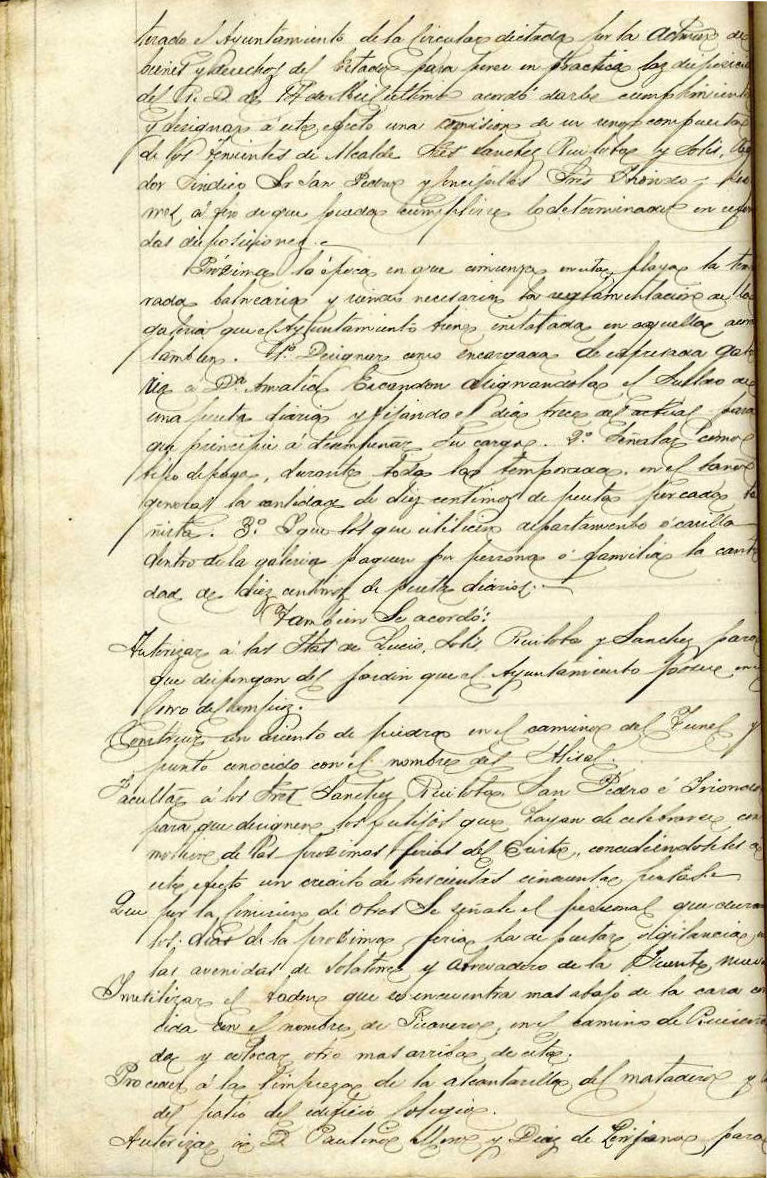 terado el Ayuntamiento de la Circular dictada por la Admon de
bienes y derechos del Estado para poner en practica las disposicio
del R. D. de 17 de Abril ultimo acordó darle cumplimiento
y designar á este efecto una comision de su seno compuesta
de los Tenientes de Alcalde Sres Sanchez Ruiloba y Solis,
dor Sindico Sr San Pedro y Concejales Sres Iriondo y
á fin de que pueda cumplirse lo determinado en
das disposiciones.
Próxima la época en que comienza en esta playa la tem
rada balnearia y siendo necesaria la reglamentacion de la
galeria que el Ayuntamiento tiene instalada en aquella acor
tambien. 1º Designar como encargada de expresada gale
ria á Dª Amalia Escandon asignandola el sueldo de
una peseta diaria y fijando el dia trece del actual para
que principie á desempeñar su cargo. 2º Señalar como
tipo de pago, durante toda la temporada, en el baño
general la cantidad de diez centimos de peseta por cada ba
ñista. 3º Y que los que utilicen departamento ó casilla
dentro de la galeria paguen por persona ó familia la canti
dad de diez centimos de peseta diarios.
Tambien se acordó:
Autorizar á las Stas de Lucio, Solis, Ruiloba y Sanchez para
que dispongan del jardin que el Ayuntamiento posee en
Construir un asiento de piedra en el camino del Tunel y
punto conocido con el nombre del
Facultar á los Sres Sanchez Ruiloba San Pedro é Iriondo
para que designen los festejos que hayan de celebrarse con
motivo de las proximas ferias del Cristo, concediendoseles á
este efecto un credito de trescientas cincuenta pesetas
Que por la Comision de Obras se señale el personal que duran
los dias de la proxima feria ha de prestar vigilancia en
las avenidas de Solatorre y abrevadero de la Fuente nueva
Inutilizar el badén que se encuentra mas abajo de la casa cono
cida con el nombre de en el camino de Ruiseña
da y colocar otro mas arriba de este.
Proceder á la limpieza de la alcantarilla del matadero y
del patio del edificio Colegio.
Autorizar á D. Paulino y Diaz de para